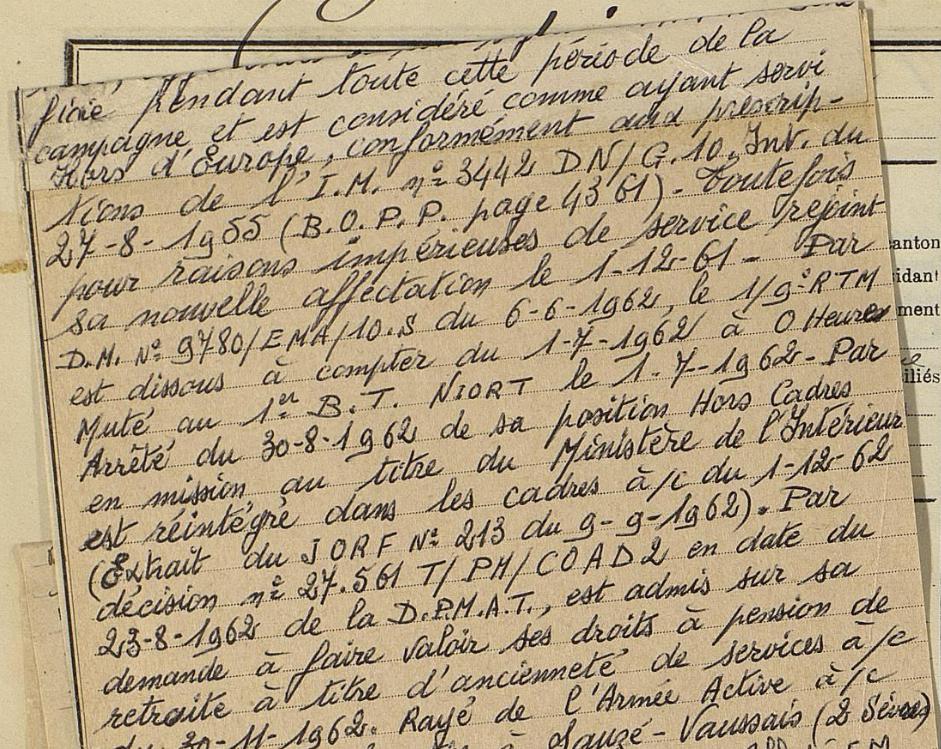 ficié pendant toute cette période de la
campagne et est considéré comme ayant servi
Hors d'Europe, conformément aux prescrip-
tions de l'I.M. n° 3442 DN/G.10.Int. du
27-8-1955 (B.O.P.P. page 4361) - Toutefois
pour raisons impérieuses de service rejoint
sa nouvelle affectation le 1-12-61 - Par
D.M. N° 9780/EMA/10.S du 6-6-1962, le 1/9e RTM
est dissous à compter du 1-7-1962 à 0 Heures
Muté au 1er B.T. NIORT le 1-7-1962 - Par
Arrêté du 30-8-1962 de sa position Hors Cadres
en mission au titre du Ministère de l'Intérieur
est réintégré dans les cadres à/c du 1-12-62
(Extrait du JORF N° 213 du 9-9-1962). Par
décision n° 27.561 T/PM/COAD2 en date du
23-8-1962 de la D.P.M.A.T., est admis sur sa
demande à faire valoir ses droits à pension de
retraite à titre d'ancienneté de services à/c
du 30-11-1962. Rayé de l'Armée Active à/c
à Sauzé-Vaussais (2 Sèvres)
anton
idant
ment
iliés